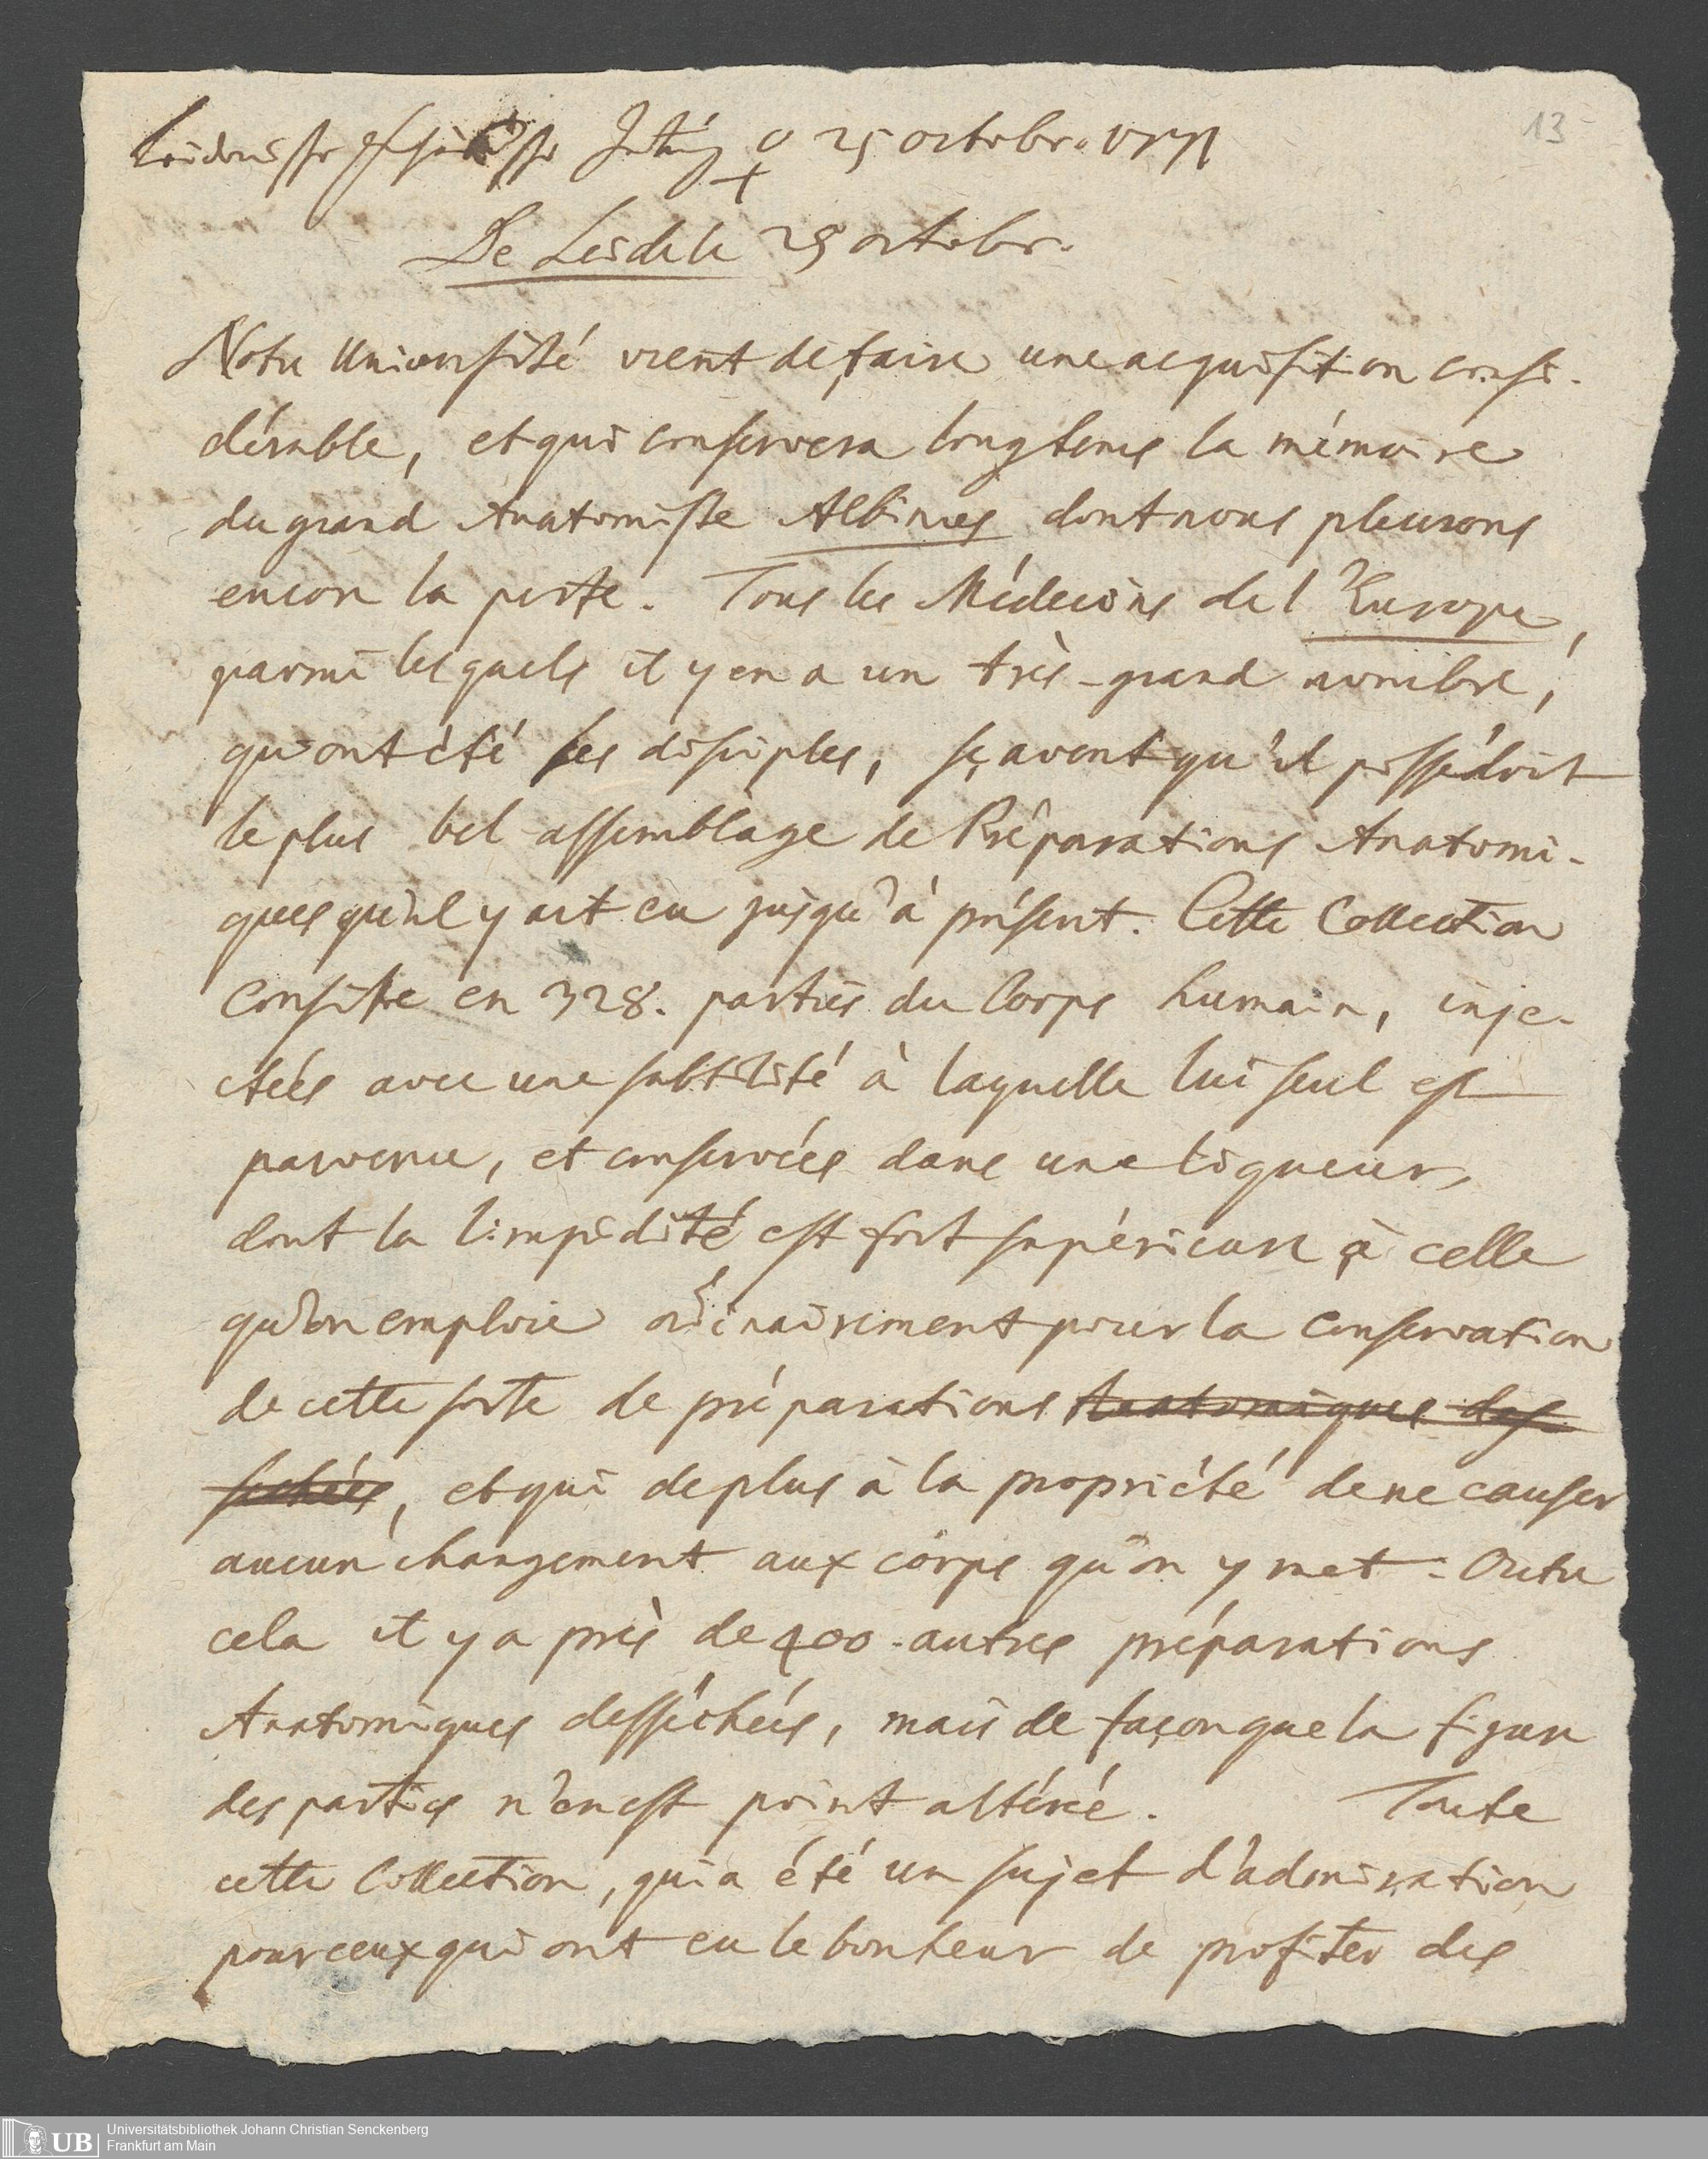 13
Leidensche französische Zeitung ♀ 25 octobr. 1771
De Leide le 25 octobr.
Notre Université vient de faire une acquisition consi-
dérable, et qui conservera longtems la mémoire
du grand Anatomiste Albinus dont nous pleurons
encore la perte. Tous les Médecins de l'Europe,
parmi lesquels il y en a un très-grand nombre,
qui ont été ses disciples, sçavent qu'il possédoit
le plus bel assemblage de Préparations Anatomi-
ques qu'il y ait eu jusqu'à présent. Cette Collection
consiste en 328. parties du Corps humain, inje-
ctées avec une subtilité à laquelle lui seul est
parvenu, et conservées dans une liqueur,
dont la limpidité est fort supérieure à celle
qu'on emploie ordinairement pour la conservation
de cette sorte de préparations Anatomiques des-
sechées, et qui de plus à la propriété de ne causer
aucun changement aux corps qu'on y met. Outre
cela il y a près de 400. autres préparations
Anatomiques desséchées, mais de façon que la figure
des parties n'en est point altérée. Toute
cette Collection, qui a été un sujet d'admiration
pour ceux qui ont eu le bonheur de profiter des
UB Universitätsbibliothek Johann Christian Senckenberg
Frankfurt am Main